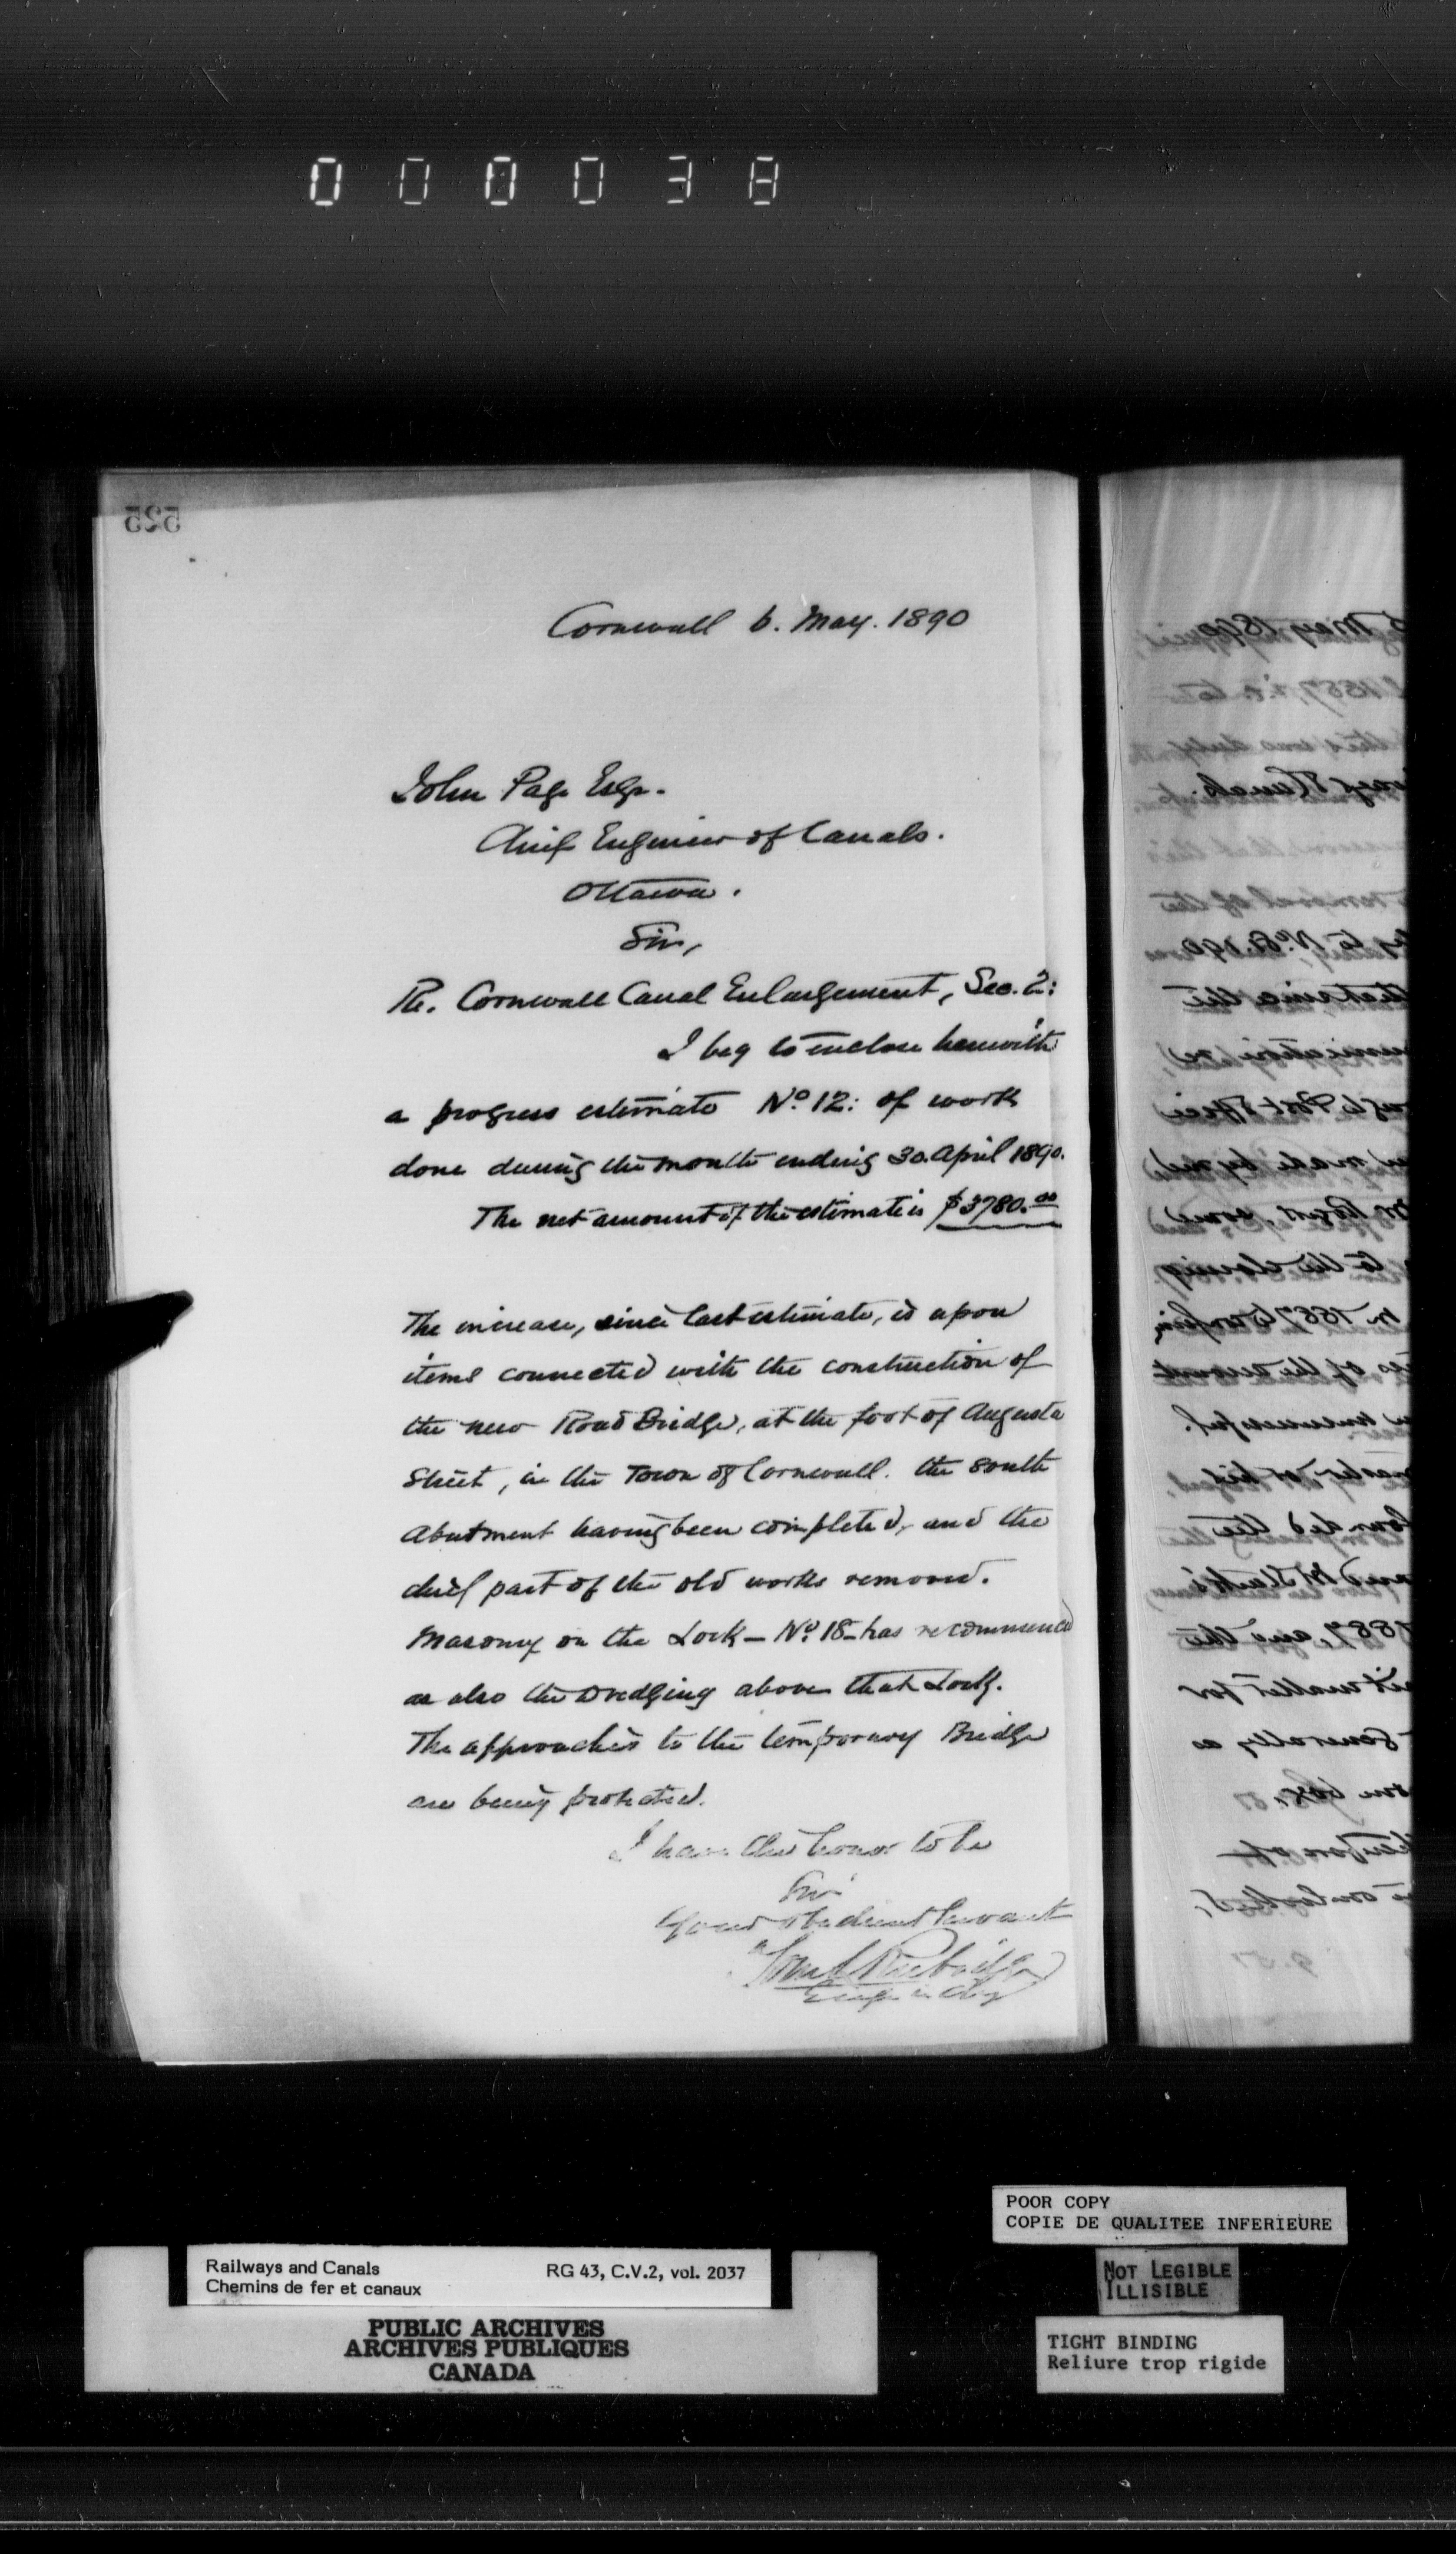 000038
525
Cornwall 6. May. 1890
John Page Esqr.
Chief Engineer of Canals.
Ottawa.
Sir,
Re. Cornwall Canal Enlargement, Sec. 2:
I beg to enclose herewith
a progress estimate No. 12: of work
done during the month ending 30. April 1890.
The net amount of the estimate is $3780.00
The increase, since last estimate, is upon
items connected with the construction of
the new Road Bridge, at the foot of Augusta
Street, in the Town of Cornwall. the south
Abutment having been completed, and the
chief part of the old works removed.
Masonry on the Lock - No. 18 - has recommenced
as also the Dredging above that Lock.
The approaches to the temporary Bridge
are being protected.
I have the honor to be
Sir
Your obedient Servant
Engr in Chg
POOR COPY
COPIE DE QUALITEE INFERIEURE
NOT LEGIBLE
ILLISIBLE
TIGHT BINDING
Reliure trop rigide
Railways and Canals
Chemins de fer et canaux
RG 43, C.V.2, vol. 2037
PUBLIC ARCHIVES
ARCHIVES PUBLIQUES
CANADA